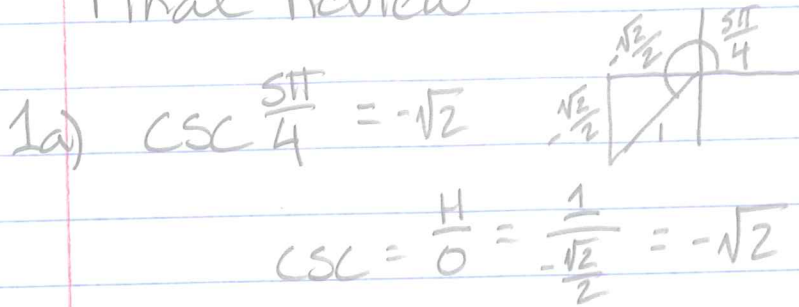 Final Review
1a) csc 5π/4 = -√2
-√2/2
5π/4
-√2/2
1
csc = H/O = 1/(-√2/2) = -√2